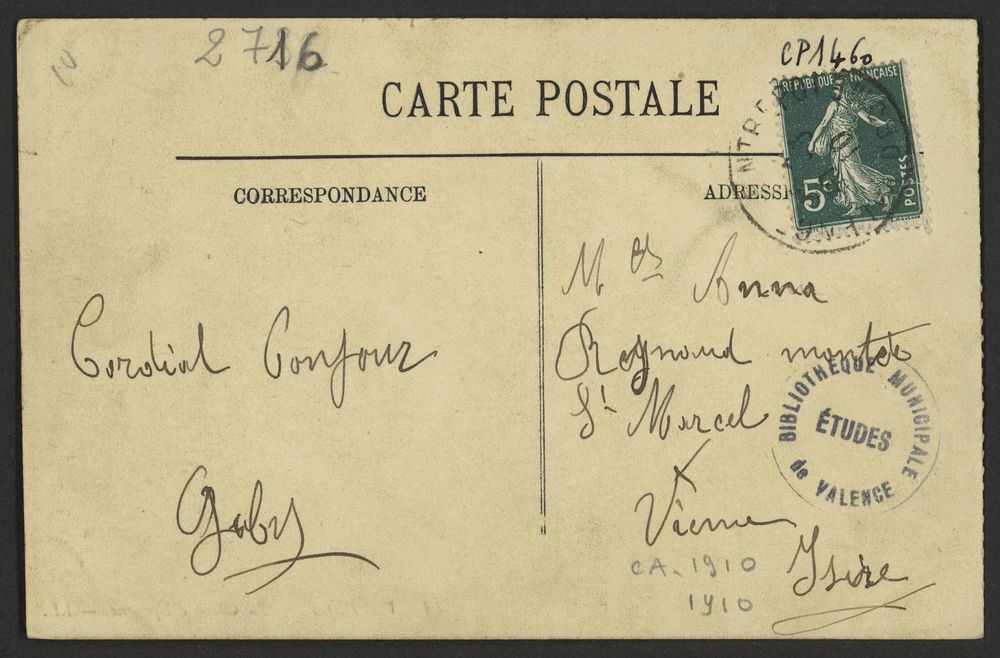 2716
CP1460
CARTE POSTALE
RÉPUBLIQUE FRANÇAISE
5c
POSTES
CORRESPONDANCE
ADRESSE
Cordial Bonjour
Gaby
Mlle Anna
Reynaud montée
St Marcel
Vienne
Isère
BIBLIOTHÈQUE MUNICIPALE
ÉTUDES
de VALENCE
CA. 1910
1910